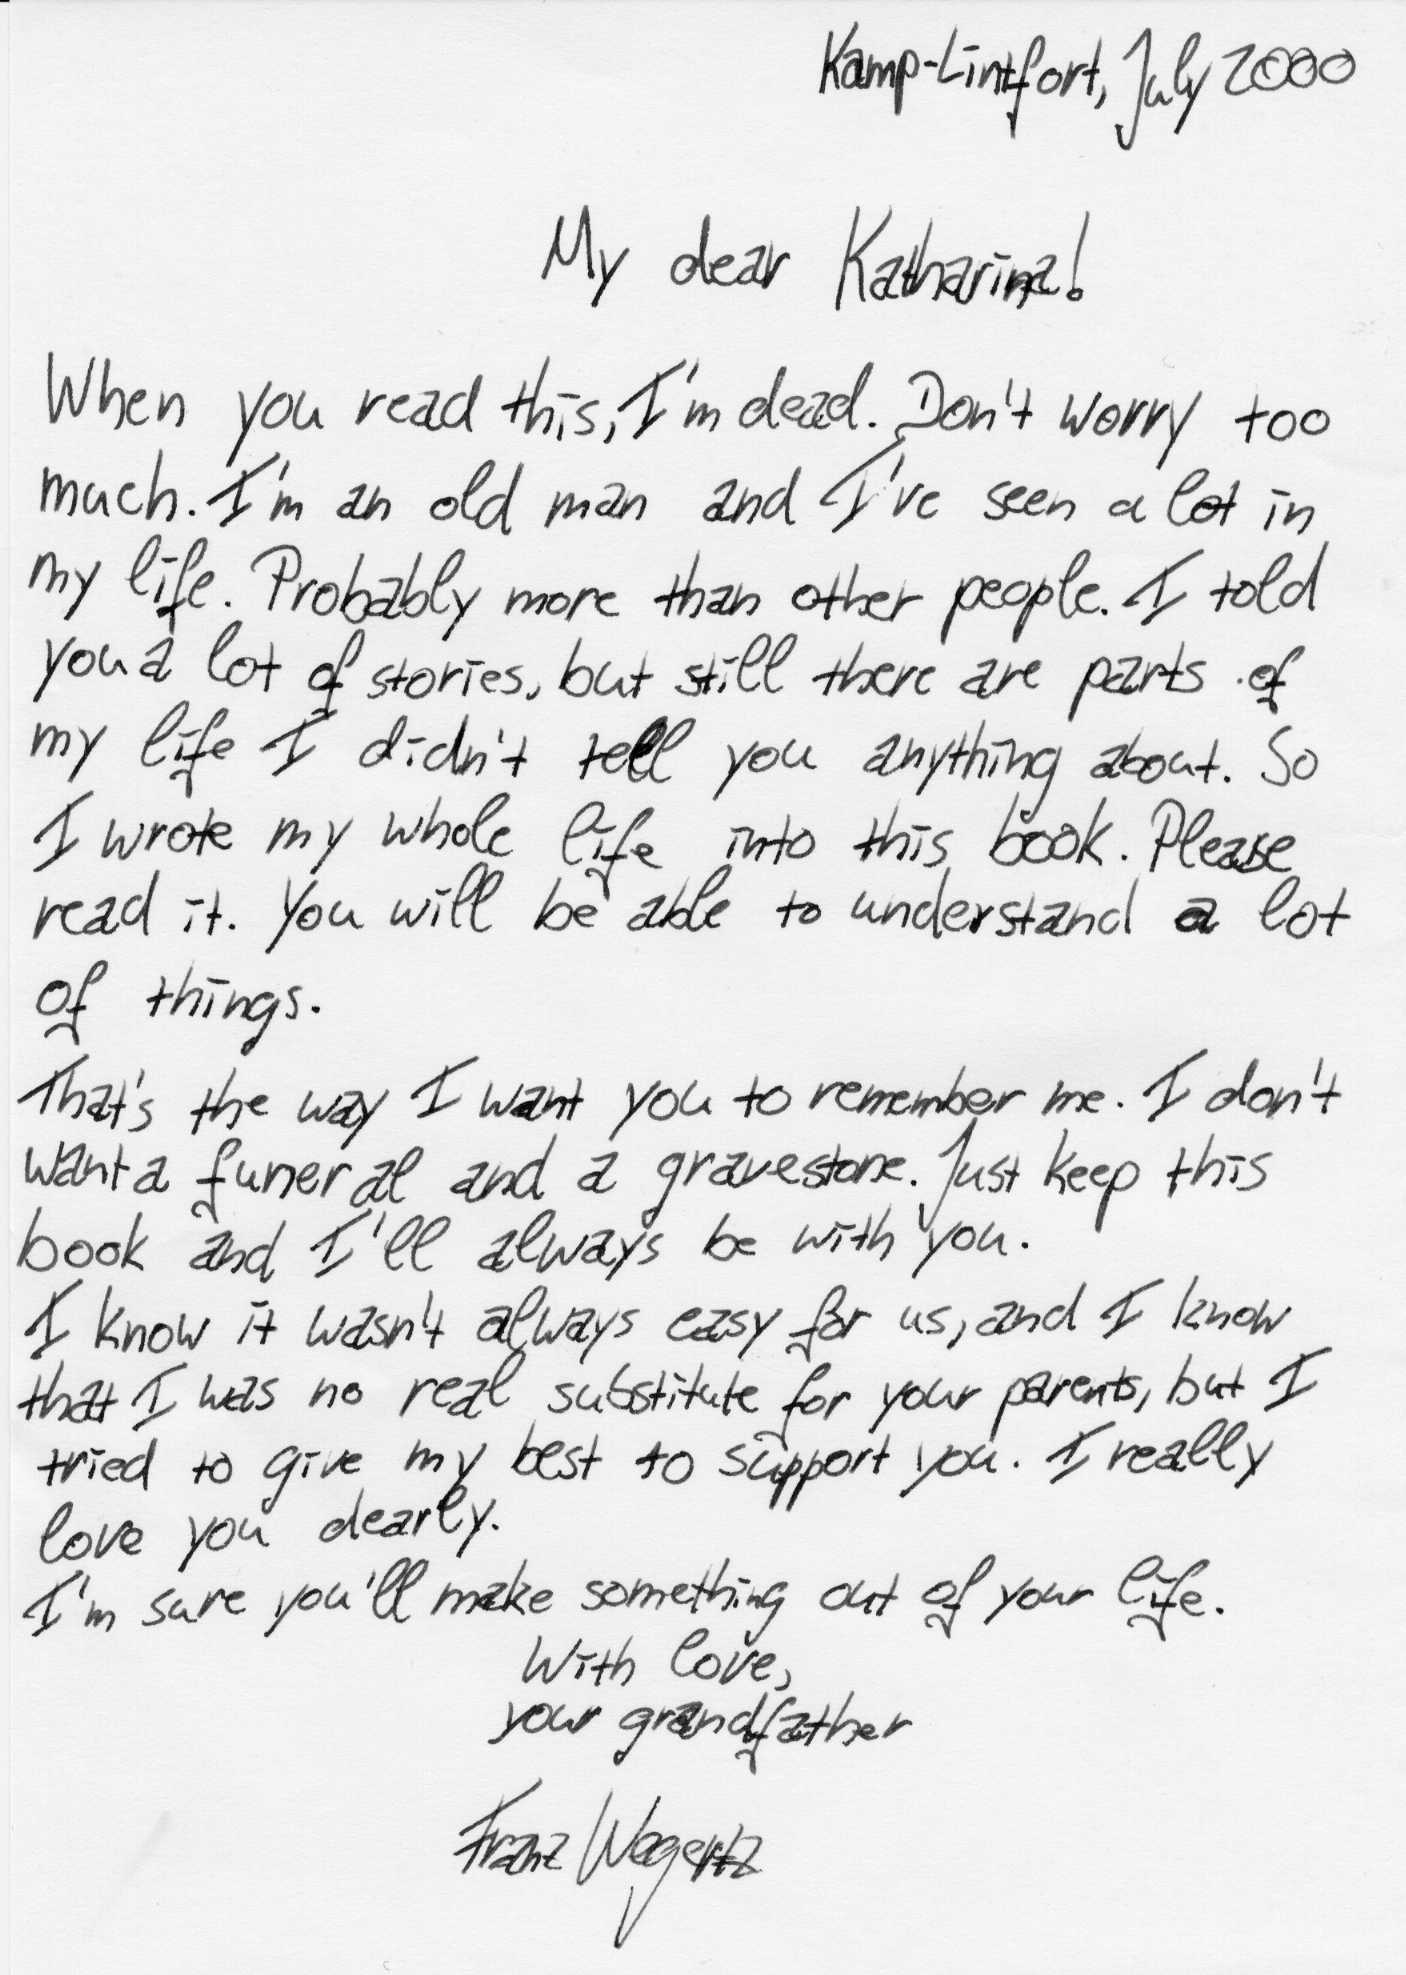 Kamp-Lintfort, July 2000
My dear Katharina!
When you read this, I'm dead. Don't worry too
much. I'm an old man and I've seen a lot in
my life. Probably more than other people. I told
you a lot of stories, but still there are parts of
my life I didn't tell you anything about. So
I wrote my whole life into this book. Please
read it. You will be able to understand a lot
of things.
That's the way I want you to remember me. I don't
want a funeral and a gravestone. Just keep this
book and I'll always be with you.
I know it wasn't always easy for us, and I know
that I was no real substitute for your parents, but I
tried to give my best to support you. I really
love you dearly.
I'm sure you'll make something out of your life.
With love,
your grandfather
Franz Wegertz